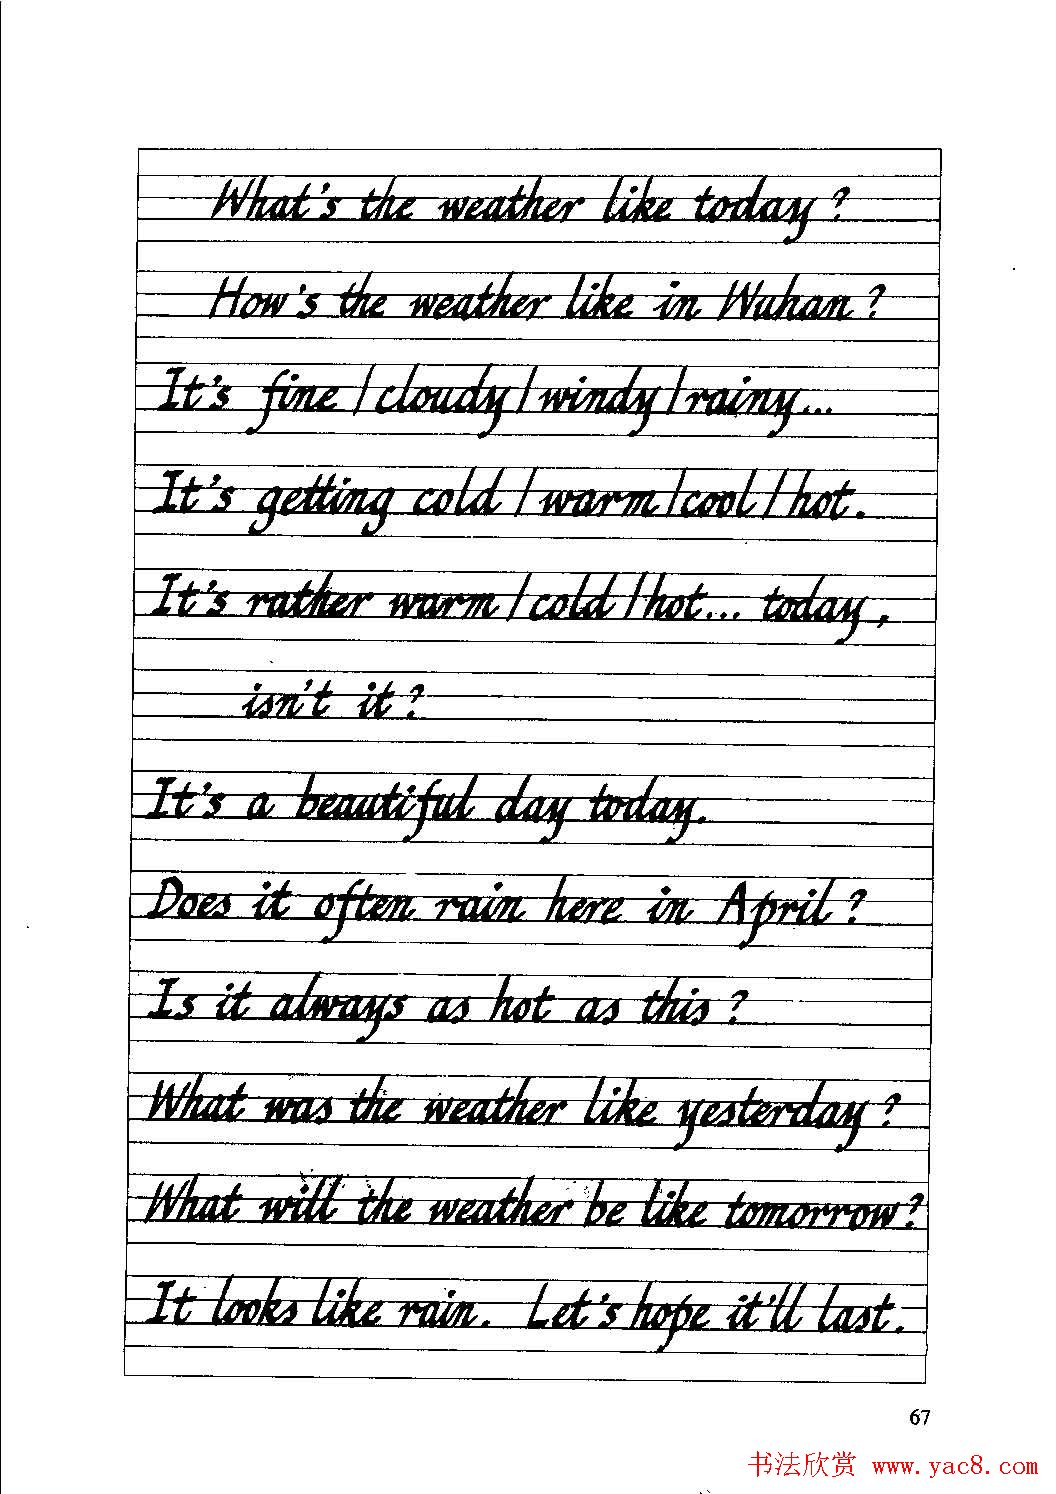 What's the weather like today?
How's the weather like in Wuhan?
It's fine/cloudy/windy/rainy...
It's getting cold/warm/cool/hot.
It's rather warm/cold/hot... today,
isn't it?
It's a beautiful day today.
Does it often rain here in April?
Is it always as hot as this?
What was the weather like yesterday?
What will the weather be like tomorrow?
It looks like rain. Let's hope it'll last.
67
书法欣赏 www.yac8.com